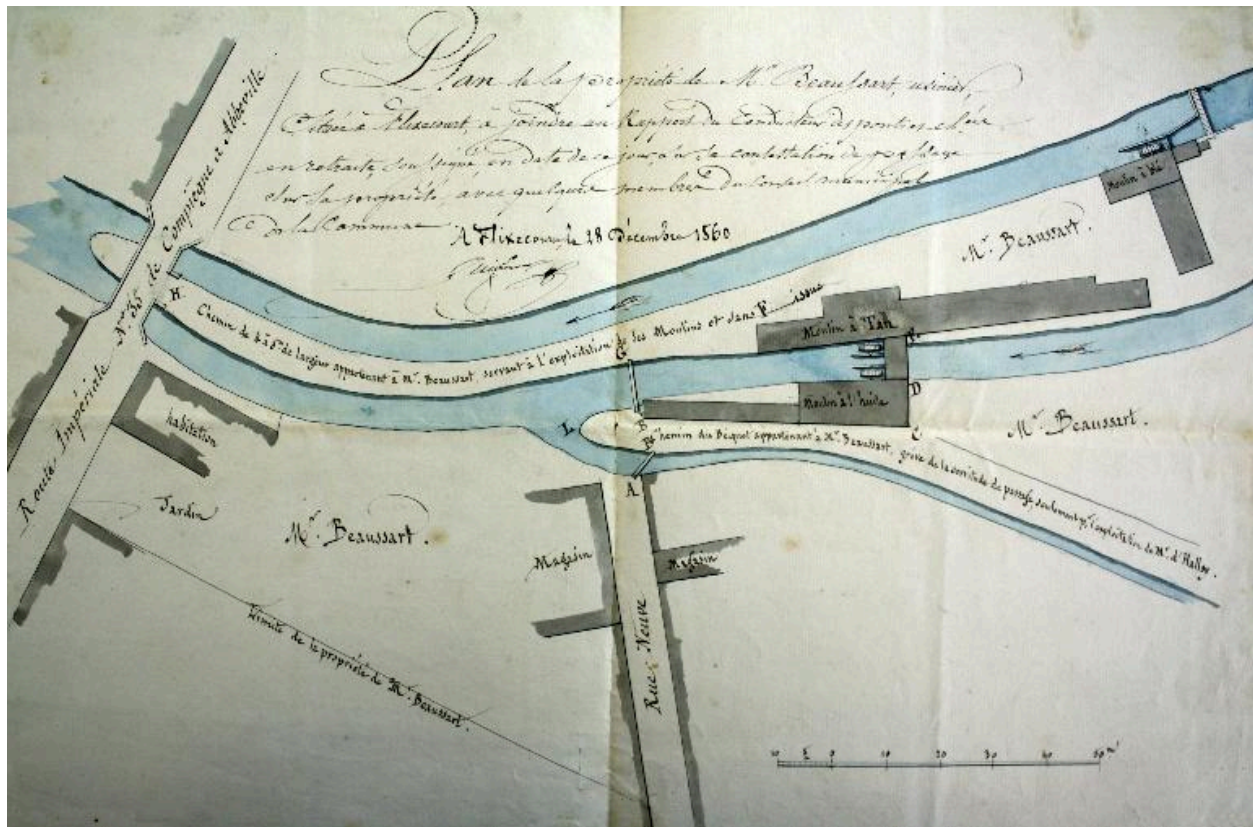 Plan de la propriété de Mr. Beaussart, usinier,
Située à Flixecourt, à joindre au Rapport du Conducteur des ponts et ch.ées
en retraite, soussigné, en date de ce jour, sur la contestation de passage
sur la propriété, avec quelques membres du Conseil municipal
de la Commune
A Flixecourt le 28 Décembre 1860
Route Impériale No. 35 de Compiègne à Abbeville
Moulin à blé
Mr. Beaussart.
H
Chemin de 4 à 5m de largeur appartenant à Mr. Beaussart, servant à l'exploitation de ses Moulins et sans issue
Moulin à Tan
G
F
D
Moulin à l'huile
L
B
C
Chemin du Becquet appartenant à Mr. Beaussart, grevé de la servitude de passage, seulement pr. l'exploitation de Mr. d'Halloy.
Mr. Beaussart.
A
habitation
Jardin
Mr. Beaussart.
Magasin
Magasin
Rue Neuve
Limite de la propriété de Mr. Beaussart.
10 5 0 10 20 30 40 50 m